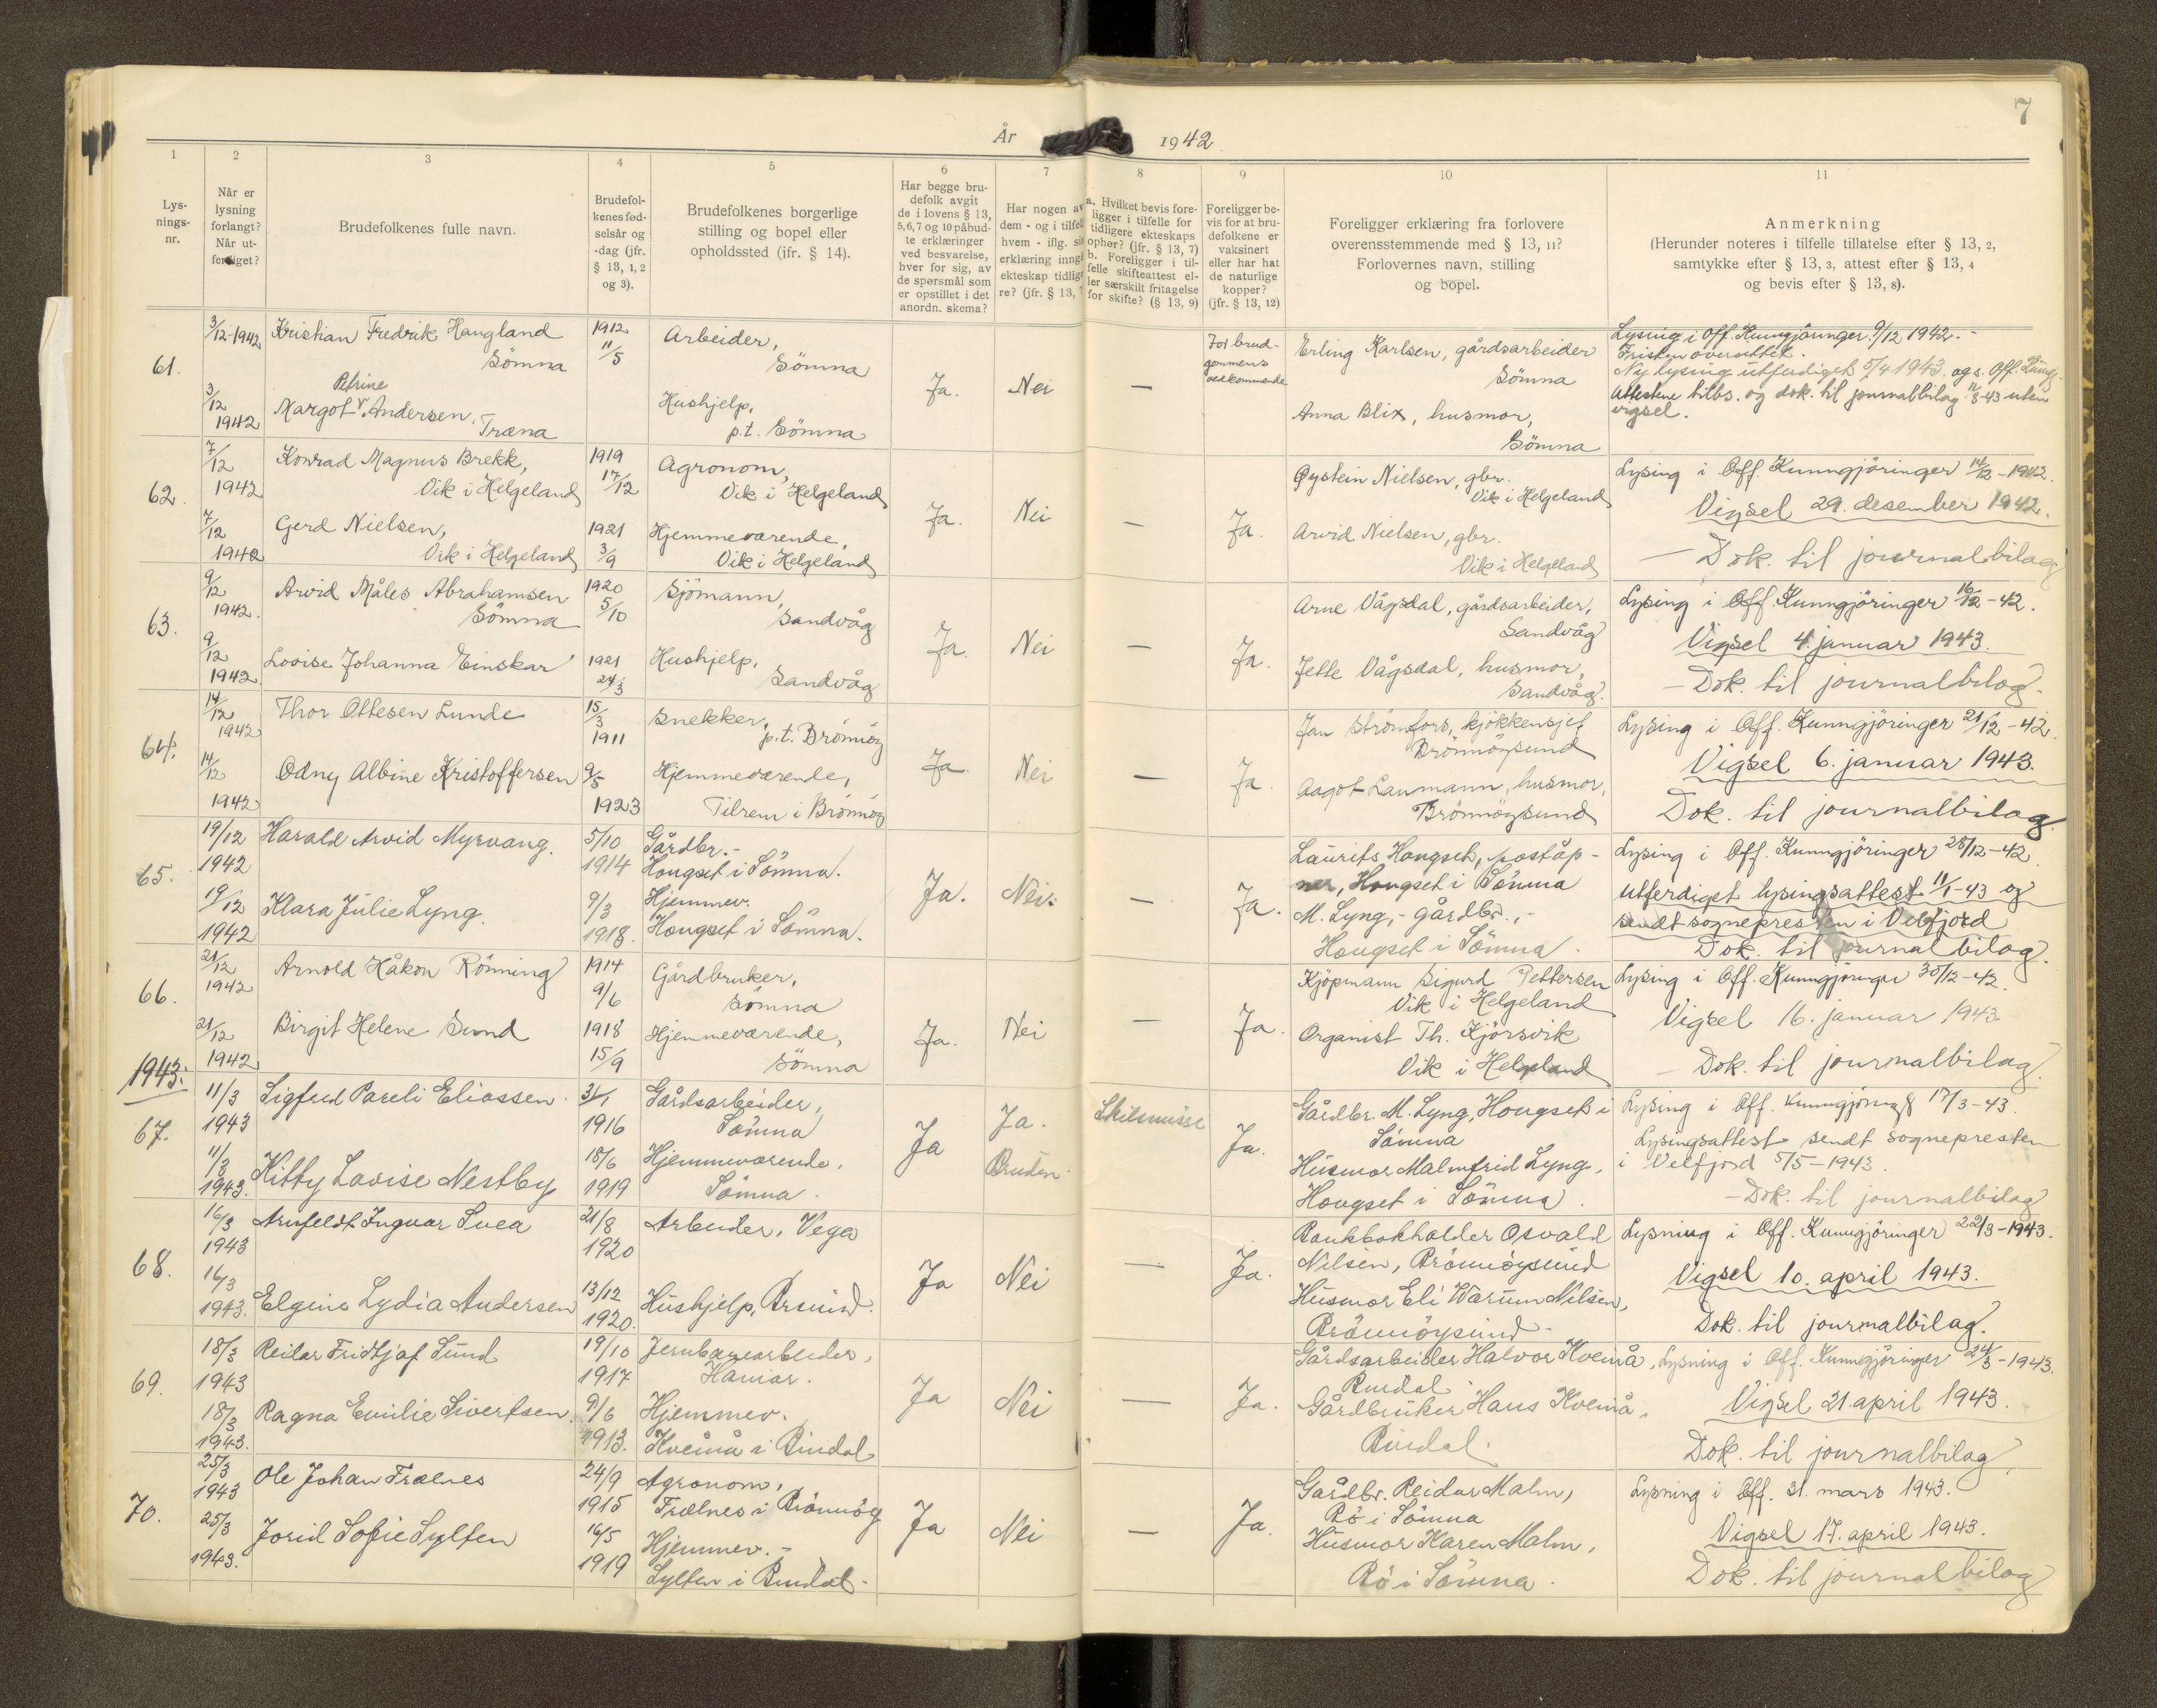 7
År 1942
1 2 3 4 5 6 7 8 9 10 11
Lys-
nings-
nr.
Når er
lysning
forlangt?
Når ut-
ferdiget?
Brudefolkenes fulle navn.
Brudefol-
kenes fød-
selsår og
-dag (jfr.
§ 13, 1, 2
og 3).
Brudefolkenes borgerlige
stilling og bopel eller
opholdssted (jfr. § 14).
Har begge bru-
defolk avgit
de i lovens § 13,
5, 6, 7 og 10 påbud-
te erklæringer
ved besvarelse,
hver for sig, av
de spørsmål som
er opstillet i det
anordn. skema?
Har nogen av
dem - og i tilfelle
hvem - iflg. sin
erklæring inngå
ekteskap tidlige-
re? (jfr. § 13, 7
a. Hvilket bevis fore-
ligger i tilfelle for
tidligere ekteskaps
ophør? (jfr. § 13, 7)
b. Foreligger i til-
felle skifteattest el-
ler særskilt fritagelse
for skifte? (§ 13, 9)
Foreligger be-
vis for at bru-
defolkene er
vaksinert
eller har hat
de naturlige
kopper?
(jfr. § 13, 12)
Foreligger erklæring fra forlovere
overensstemmende med § 13, 11?
Forlovernes navn, stilling
og bopel.
Anmerkning
(Herunder noteres i tilfelle tillatelse efter § 13, 2,
samtykke efter § 13, 3, attest efter § 13, 4
og bevis efter § 13, 8).
61.
3/12-1942 Kristian Fredrik Haugland
Sömna
1912
11/5
Arbeider,
Sömna
3/12
1942
Petrine
Margot Andersen,
Træna
Hushjelp,
p.t. Sömna
Ja. Nei —
For brud-
gommens
vedkommende
Erling Karlsen, gårdsarbeider
Sömna
Anna Blix, husmor,
Sömna
Lysing i Off. Kunngjöringer 9/12 1942. -
Fristen oversittet.
Ny lysing utferdiget 5/4 1943. ogs. Off. Kungj.
Attestene tilbs. og dok. til journalbilag 11/8-43 uten
vigsel.
62.
7/12
1942
Konrad Magnus Brekk,
Vik i Helgeland
1919
17/12
Agronom,
Vik i Helgeland
7/12
1942
Gerd Nielsen,
Vik i Helgeland
1921
3/9
Hjemmeværende,
Vik i Helgeland
Ja. Nei — Ja.
Øystein Nielsen, gbr.
Vik i Helgeland
Arvid Nielsen, gbr.
Vik i Helgeland
Lysing i Off. Kunngjöringer 14/12-1942.
Vigsel 29. desember 1942.
— Dok. til journalbilag
63.
9/12
1942.
Arvid Måløs Abrahamsen
Sömna
1920
5/10
Sjömann,
Sandvåg
9/12
1942.
Lovise Johanna Einskar
1921
24/3
Hushjelp,
Sandvåg
Ja. Nei — Ja.
Arne Vågsdal, gårdsarbeider,
Sandvåg
Jette Vågsdal, husmor,
Sandvåg.
Lysing i Off. Kunngjöringer 16/12-42.
Vigsel 4. januar 1943.
— Dok. til journalbilag.
64.
14/12
1942
Thor Ottesen Lunde
15/3
1911
Snekker,
p.t. Brönnöy
14/12
1942
Odny Albine Kristoffersen
9/5
1923
Hjemmeværende,
Tilrem i Brönnöy
Ja. Nei — Ja.
Jan Strömfors, kjökkensjef
Brönnöysund
Aagot Laumann, husmor,
Brönnöysund
Lysing i Off. Kunngjöringer 21/12-42.
Vigsel 6. januar 1943.
Dok. til journalbilag.
65.
19/12
1942
Harald Arvid Myrvang.
5/10
1914
Gårdbr.-
Hongset i Sömna.
19/12
1942
Klara Julie Lyng.
9/3
1918.
Hjemmev.
Hongset i Sömna.
Ja. Nei. — Ja.
Laurits Hongset, poståp-
ner, Hongset i Sömna
M. Lyng,- gårdbr.,-
Hongset i Sömna.
Lysing i Off. Kunngjöringer 28/12-42
Utferdiget lysingsattest 11/1-43 og
sendt sognepresten i Velfjord
Dok. til journalbilag.
66.
21/12
1942
Arnold Håkon Rönning
1914
9/6
Gårdbruker,
Sömna
21/12
1942
Birgit Helene Sund
1918
15/9
Hjemmeværende,
Sömna
Ja. Nei — Ja.
Kjöpmann Sigurd Pettersen
Vik i Helgeland
Organist Th. Kjörsvik
Vik i Helgeland
Lysing i Off. Kunngjöringer 30/12-42.
Vigsel 16. januar 1943
— Dok. til journalbilag.
1943:
67.
11/3
1943
Sigfred Pareli Eliassen.
31/1
1916
Gårdsarbeider,
Sömna
11/3
1943.
Kitty Lovise Nestby
18/6
1919
Hjemmeværende,
Sömna.
Ja Ja.
Bruden.
Skilsmisse Ja.
Gårdbr. M. Lyng, Hongset i
Sömna
Husmor Malmfrid Lyng,
Hongset i Sömna.
Lysing i Off. Kunngjöring 17/3-43.
Lysingsattest sendt sognepresten
i Velfjord 5/5-1943.
— Dok. til journalbilag
68.
16/3
1943
Arnfeldt Ingvar Svea
21/8
1920
Arbeider, Vega
16/3
1943.
Elgine Lydia Andersen
13/12
1920.
Hushjelp, Brsund.
Ja Nei — Ja.
Bankbokholder Osvald
Nilsen, Brönnöysund
Husmor Eli Warum Nilsen,
Brönnöysund.
Lysning i Off. Kunngjöringer 22/3-1943.
Vigsel 10. april 1943.
Dok. til journalbilag.
69.
18/3
1943
Reidar Fridtjof Sund
19/10
1917
Jernbanearbeider,
Hamar.
18/3
1943.
Ragna Emilie Sivertsen.
9/6
1913.
Hjemmev.
Kveinå i Bindal
Ja Nei — Ja.
Gårdsarbeider Halvor Kveinå,
Bindal
Gårdbruker Hans Kveinå,
Bindal.
Lysning i Off. Kunngjöringer 24/3-1943.
Vigsel 21. april 1943.
Dok. til journalbilag.
70.
25/3
1943
Ole Johan Frælnes
24/9
1915
Agronom,
Frælnes i Brönnöy
25/3
1943.
Jorid Sofie Sylten
16/5
1919
Hjemmev.-
Sylten i Bindal.
Ja Nei — Ja.
Gårdbr. Reidar Malm,
Bö i Sömna
Husmor Karen Malm,
Bö i Sömna.
Lysning i Off. 31. mars 1943.
Vigsel 17. april 1943.
Dok. til journalbilag